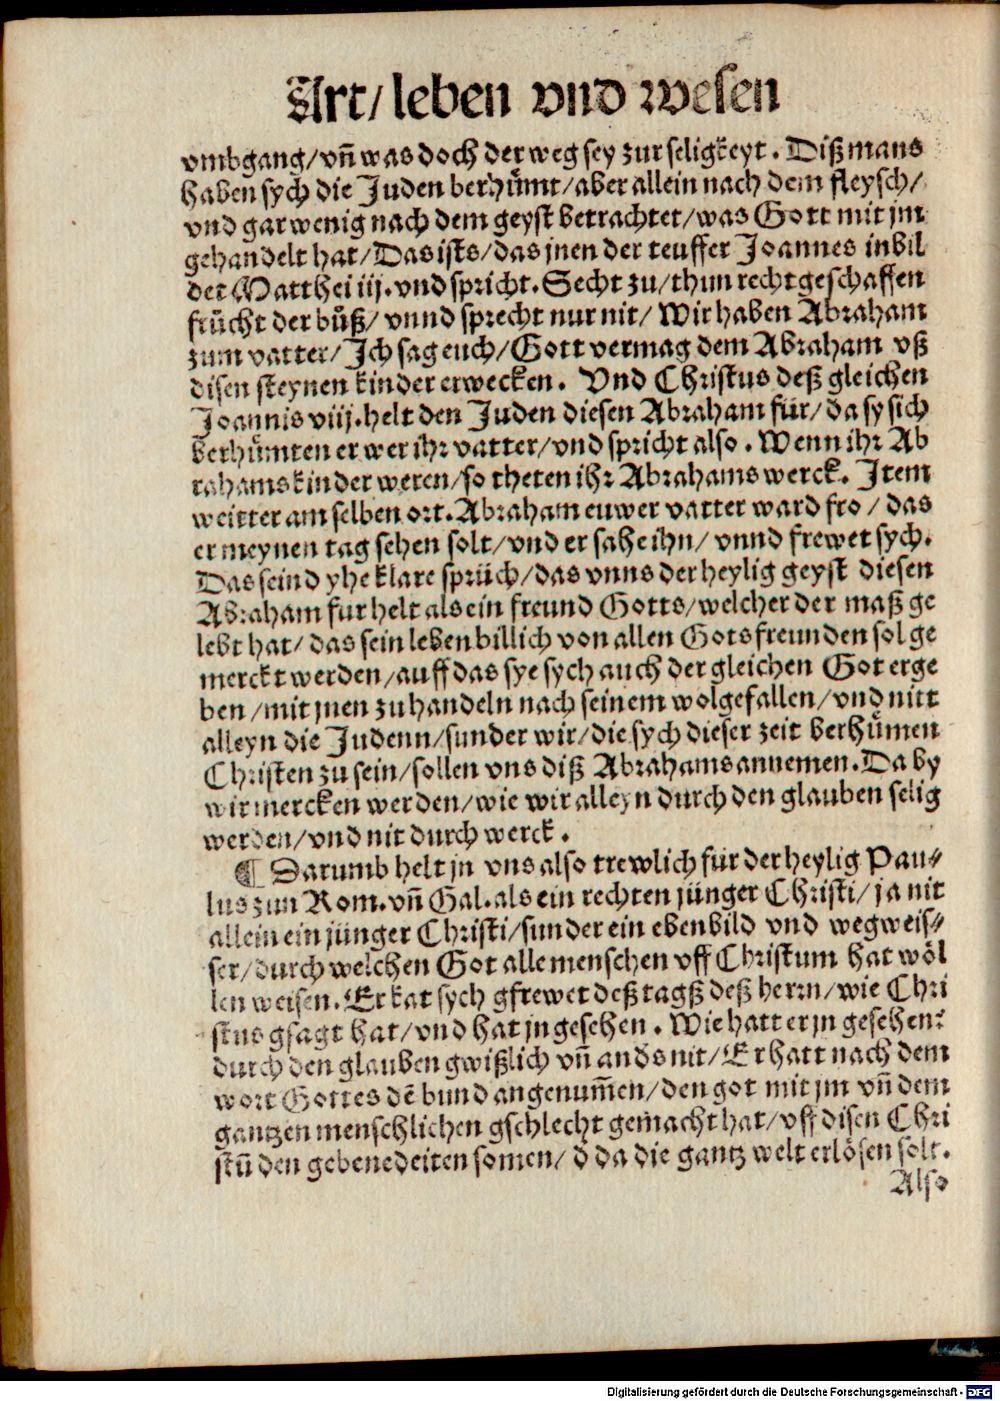 Art/ leben vnd wesen
vmbgang/ vn̄ was doch der weg sey zur seligkeyt. Diß mans
haben sych die Juden berhuͤmt/ aber allein nach dem fleysch/
vnd gar wenig nach dem geyst betrachtet/ was Gott mit jm
gehandelt hat/ Das ists/ das jnen der teuffer Joannes in bil
der Matthei iij. vnd spricht. Secht zu/ thun rechtgeschaffen
fruͤcht der buͤß/ vnnd sprecht nur nit/ Wir haben Abraham
zum vatter/ Ich sag euch/ Gott vermag dem Abraham vß
disen steynen kinder erwecken. Vnd Christus deß gleichen
Joannis viij. helt den Juden diesen Abraham für/ da sy sich
berhuͤmten er wer ihr vatter/ vnd spricht also. Wenn ihr Ab
rahams kinder weren/ so theten ihr Abrahams werck. Item
weitter am selben ort. Abraham euwer vatter ward fro/ das
er meynen tag sehen solt/ vnd er sahe ihn/ vnnd frewet sych.
Das seind yhe klare sprüch/ das vnns der heylig geyst diesen
Abraham fur helt als ein freund Gotts/ welcher der maß ge
lebt hat/ das sein leben billich von allen Gots freunden sol ge
merckt werden/ auff das sye sych auch der gleichen Got erge
ben/ mit jnen zu handeln nach seinem wolgefallen/ vnd nitt
alleyn die Judenn/ sunder wir/ die sych dieser zeit berhuͤmen
Christen zu sein/ sollen vns diß Abrahams annemen. Da by
wir mercken werden/ wie wir alleyn durch den glauben selig
werden/ vnd nit durch werck.
¶ Darumb helt jn vns also trewlich für der heylig Pau⸗
lus zun Rom. vn̄ Gal. als ein rechten jünger Christi/ ja nit
allein ein jünger Christi/ sunder ein ebenbild vnd wegweis⸗
ser/ durch welchen Got alle menschen vff Christum hat wöl
len weisen. Er kat sych gfrewet deß tagß deß herrn/ wie Chri
stus gsagt hat/ vnd hat jn gesehen. Wie hatt er jn gesehen?
durch den glauben gwißlich vn̄ anđs nit/ Er hatt nach dem
wort Gottes dē bund angenum̄en/ den got mit jm vn̄ dem
gantzen menschlichen gschlecht gemacht hat/ vff disen Chri
stū den gebenedeiten somen/ đ da die gantz welt erlösen solt.
Also
Digitalisierung gefördert durch die Deutsche Forschungsgemeinschaft - DFG